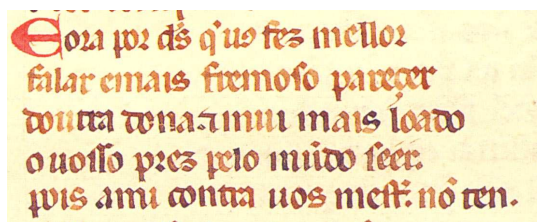 E ora por d̃s q̃ u9 fez mellor
falar emais fremoso pareçer
doutra dona ⁊ mui mais loado
o uosso prez pelo mũdo seer.
pois ami contra uos mest̃. nõ ten.